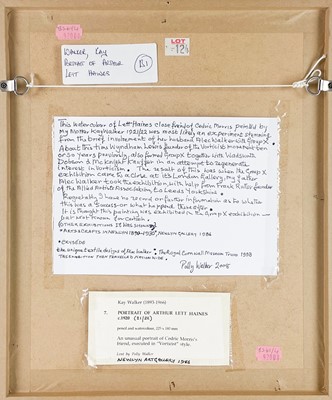 LOT
124
WALKER, KAY
PORTRAIT OF ARTHUR
LETT HAINES
This watercolour of Lett-Haines close friend of Cedric Morris painted by
my Mother Kay Walker 1921/22 was most likely an experiment stemming
from the brief involvement of her husband Alec Walker with Group X.
About this time Wyndham Lewis founder of the Vorticist movement ten
or so years previously, also formed Group X together with Wadsworth
Dobson & McKnight Kauffer in an attempt to regenerate
interest in Vorticism. The result of this was when the Group X
exhibition came to a close at its London gallery, my father
Alec Walker took the exhibition with help from Frank Rutter founder
of the Allied Artists Association to Leeds Yorkshire.
Regretably I have no record or further information as to whether
this was a success or what happened thereafter.
It is thought this painting was exhibited in the Group X exhibition
(OTHER EXHIBITIONS IT WAS SHOWN)
NEWLYN GALLERY 1986
• CRYSEDE
the unique textile designs of Alec Walker. The Royal Cornwall Museum Truro 1993
Polly Walker 2005
Kay Walker (1895-1966)
7. PORTRAIT OF ARTHUR LETT HAINES
c.1920 (21/22)
pencil and watercolour,
An unusual portrait of Cedric Morris's
friend, executed in "Vorticist" style.
Lent by Polly Walker
NEWLYN ART GALLERY 1986